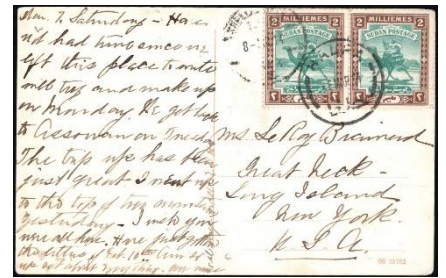 Mar. 7. Saturday - Have
n't had time since we
left this place to write
will try and make up
on Monday. We get back
to Assouan on Tuesday
The trip up has been
just great I went up
to the top of
yesterday - I wish you
were all here. Have just gotten
the letters of Feb. 10th
2 MILLIEMES 2
SUDAN POSTAGE
2 MILLIEMES 2
SUDAN POSTAGE
HALFA
Ms. LeRoy Brainerd
Great Neck -
Long Island
New York.
U.S.A.